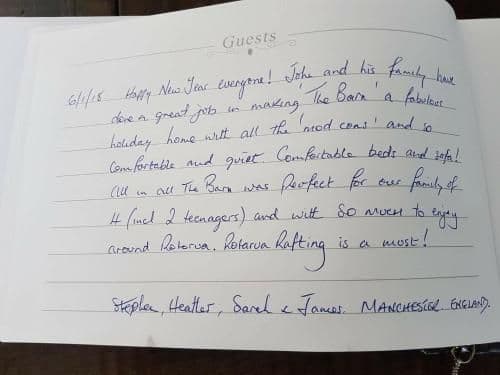 Guests
6/1/18 Happy New Year everyone! John and his family have
done a great job in making 'The Barn' a fabulous
holiday home with all the 'mod cons' and so
comfortable and quiet. Comfortable beds and sofa!
All in all The Barn was perfect for our family of
4 (incl 2 teenagers) and with SO MUCH to enjoy
around Rotorua. Rotorua Rafting is a must!
Stephen, Heather, Sarah & James. MANCHESTER. ENGLAND.